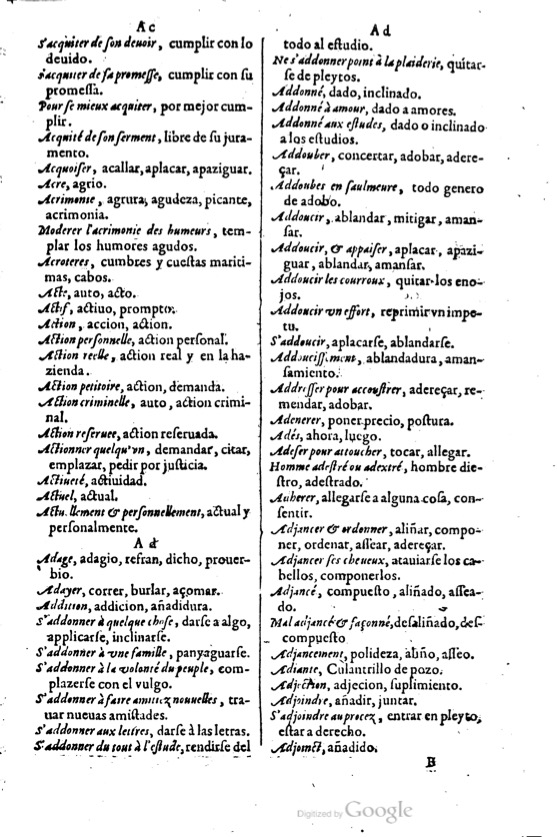 Ac
S'acquiter de son deuoir, cumplir con lo
deuido.
S'acquiter de sa promesse, cumplir con su
promessa.
Pour se mieux acquiter, por mejor cum-
plir.
Acquité de son serment, libre de su jura-
mento.
Acquoiser, acallar, aplacar, apaziguar.
Acre, agrio.
Acrimonie, agrura, agudeza, picante,
acrimonia.
Moderer l'acrimonie des humeurs, tem-
plar los humores agudos.
Acroteres, cumbres y cuestas mariti-
mas, cabos.
Acte, auto, acto.
Actif, actiuo, prompto.
Action, accion, action.
Action personnelle, action personal.
Action reelle, action real y en la ha-
zienda.
Action petitoire, action, demanda.
Action criminelle, auto, action crimi-
nal.
Action reseruee, action reseruada.
Actionner quelqu'vn, demandar, citar,
emplazar, pedir por justicia.
Actiueté, actiuidad.
Actuel, actual.
Actuellement & personnellement, actual y
personalmente.
Ad
Adage, adagio, refran, dicho, prouer-
bio.
Adayer, correr, burlar, açomar.
Addition, addicion, añadidura.
S'addonner à quelque chose, darse a algo,
applicarse, inclinarse.
S'addonner à vne famille, panyaguarse.
S'addonner à la volonté du peuple, com-
plazerse con el vulgo.
S'addonner à faire amitiez nouuelles, tra-
uar nueuas amistades.
S'addonner aux lettres, darse à las letras.
S'addonner du tout à l'estude, rendirse del
Ad
todo al estudio.
Ne s'addonner point à la plaiderie, quitar-
se de pleytos.
Addonné, dado, inclinado.
Addonné à amour, dado a amores.
Addonné aux estudes, dado o inclinado
a los estudios.
Addouber, concertar, adobar, adere-
çar.
Addoubes en saulmeure, todo genero
de adobo.
Addoucir, ablandar, mitigar, aman-
sar.
Addoucir, & appaiser, aplacar, apazi-
guar, ablandar, amansar.
Addoucir les courroux, quitar los eno-
jos.
Addoucir vn effort, reprimir vn impe-
tu.
S'addoucir, aplacarse, ablandarse.
Addoucissement, ablandadura, aman-
samiento.
Addresser pour accoustrer, adereçar, re-
mendar, adobar.
Adenerer, poner precio, postura.
Adés, ahora, luego.
Adeser pour attoucher, tocar, allegar.
Homme adestré ou adextré, hombre die-
stro, adestrado.
Auherer, allegarse a alguna cosa, con-
sentir.
Adjancer & ordonner, aliñar, compo-
ner, ordenar, assear, adereçar.
Adjancer ses cheueux, atauiarse los ca-
bellos, componerlos.
Adjancé, compuesto, aliñado, assea-
do.
Mal adjancé & façonné, desaliñado, des-
compuesto
Adjancement, polideza, aliño, asseo.
Adiante, Culantrillo de pozo.
Adjection, adjecion, suplimiento.
Adjoindre, añadir, juntar.
S'adjoindre au procez, entrar en pleyto,
estar a derecho.
Adjoinct, añadido.
B
Digitized by Google